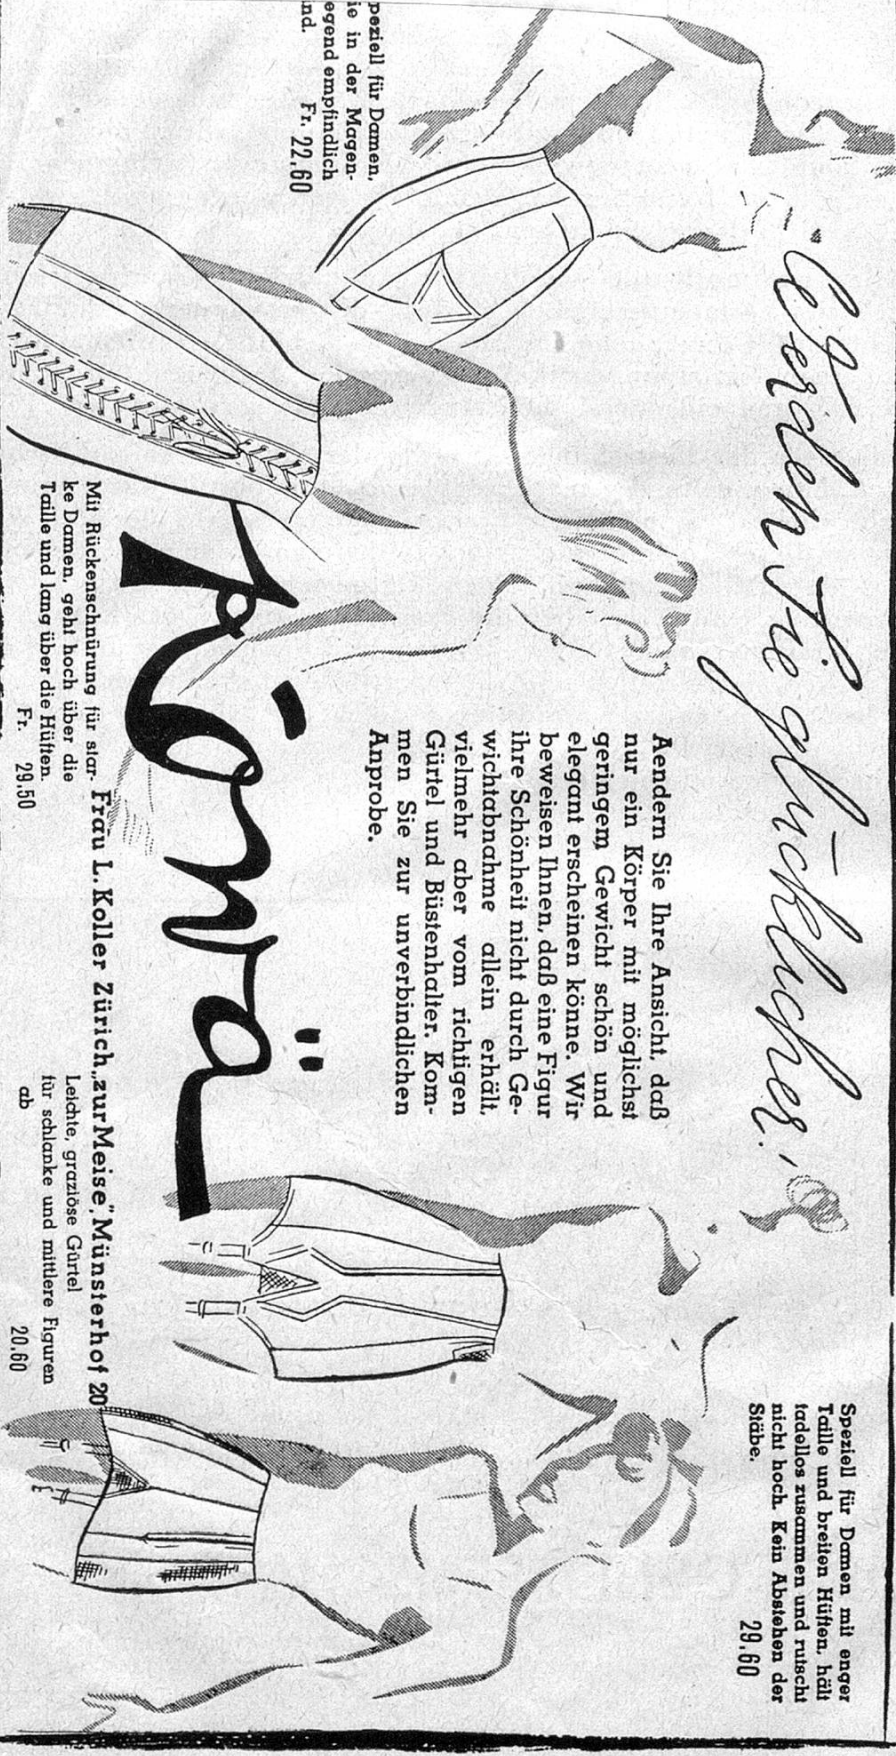 Werden Sie glücklicher!
Speziell für Damen mit enger
Taille und breiten Hüften, hält
tadellos zusammen und rutscht
nicht hoch. Kein Abstehen der
Stäbe.
29.60
Aendern Sie Ihre Ansicht, daß
nur ein Körper mit möglichst
geringem Gewicht schön und
elegant erscheinen könne. Wir
beweisen Ihnen, daß eine Figur
ihre Schönheit nicht durch Ge-
wichtabnahme allein erhält,
vielmehr aber vom richtigen
Gürtel und Büstenhalter. Kom-
men Sie zur unverbindlichen
Anprobe.
peziell für Damen,
ie in der Magen-
egend empfindlich
nd. Fr. 22.60
Frau L. Koller Zürich „zur Meise", Münsterhof 20
Mit Rückenschnürung für star-
ke Damen, geht hoch über die
Taille und lang über die Hüften.
Fr. 29.50
Leichte, graziöse Gürtel
für schlanke und mittlere Figuren
ab 20.60